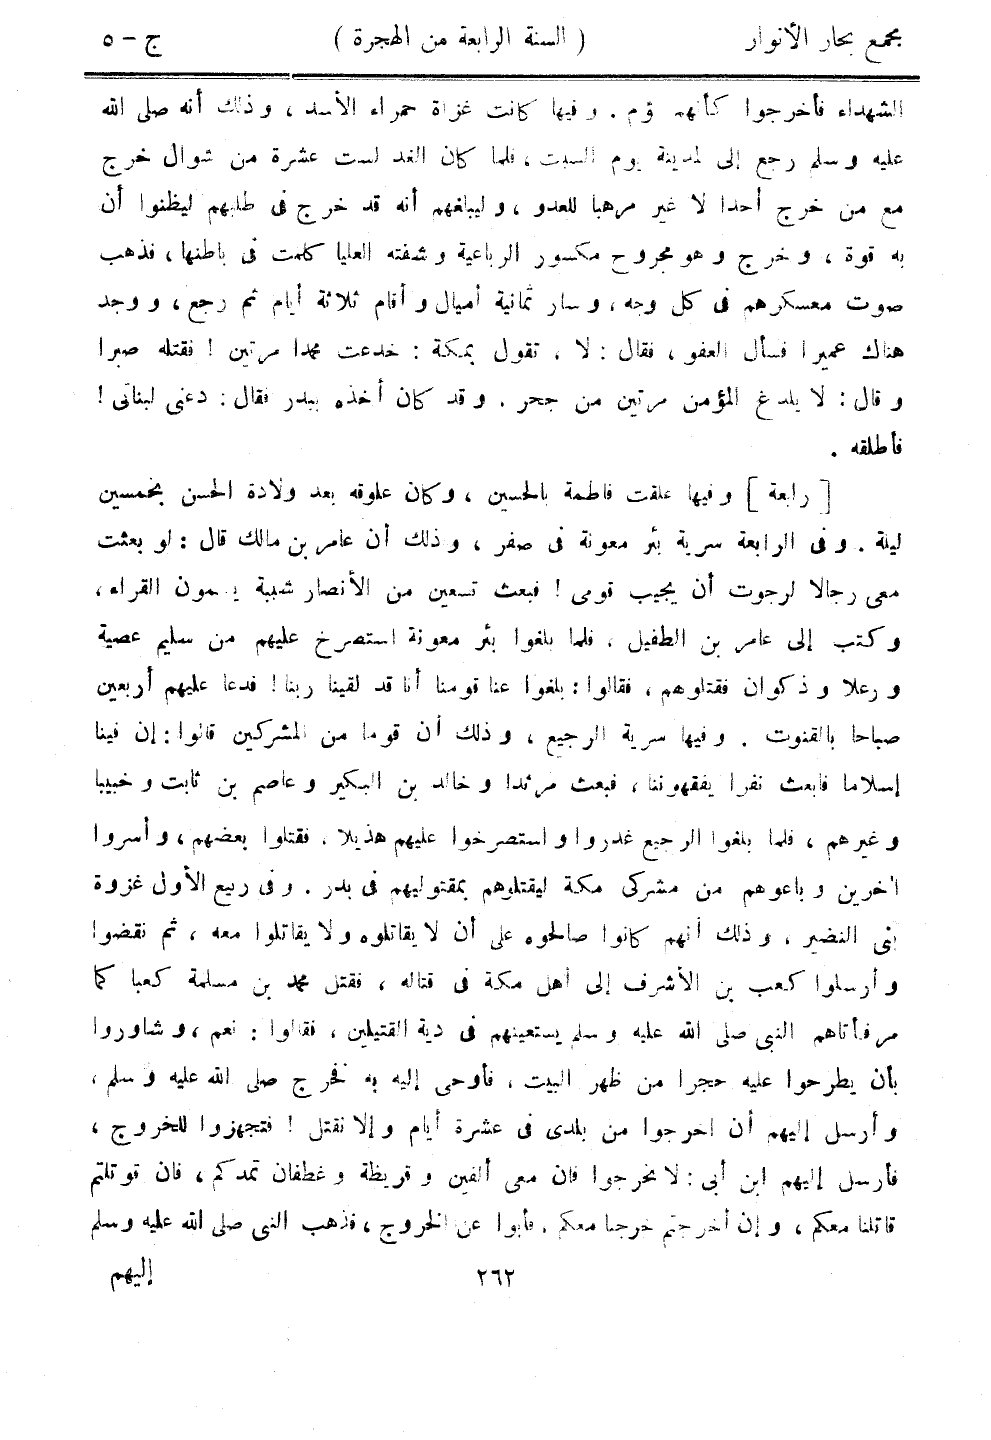 مجمع بحار الأنوار ( السنة الرابعة من الهجرة ) ج - ٥
الشهداء فأخرجوا كأنهم نوم . و فيها كانت غزاة حمراء الأسد ، و ذلك أنه صلى الله
عليه و سلم رجع إلى المدينة يوم السبت ، فلما كان الغد لست عشرة من شوال خرج
مع من خرج أحدا لا غير مرهبا للعدو ، و ليبلغهم أنه قد خرج فى طلبهم ليظنوا أن
به قوة ، و خرج و هو مجروح مكسور الرباعية و شفته العليا كلمت فى باطنها ، فذهب
صوت معسكرهم فى كل وجه ، و سار ثمانية أميال و أقام ثلاثة أيام ثم رجع ، و وجد
هناك عميرا فسأل العفو ، فقال : لا ، تقول بمكة : خدعت محمدا مرتين ! فقتله صبرا
و قال : لا يلدغ المؤمن مرتين من جحر . و قد كان أخذه ببدر فقال : دعنى لبناتى !
فأطلقه .
[ رابعة ] و فيها علقت فاطمة بالحسين ، و كان علوقه بعد ولادة الحسن بخمسين
ليلة . و فى الرابعة سرية بئر معونة فى صفر ، و ذلك أن عامر بن مالك قال : لو بعثت
معى رجالا لرجوت أن يجيب قومى ! فبعث تسعين من الأنصار شببة يسمون القراء ،
و كتب إلى عامر بن الطفيل ، فلما بلغوا بئر معونة استصرخ عليهم من سليم عصية
و رعلا و ذكوان فقتلوهم ، فقالوا : بلغوا عنا قومنا أنا قد لقينا ربنا ! فدعا عليهم أربعين
صباحا بالقنوت . و فيها سرية الرجيع ، و ذلك أن قوما من المشركين قالوا : إن فينا
إسلاما فابعث نفرا يفقهوننا ، فبعث مرثدا و خالد بن البكير و عاصم بن ثابت و خبيبا
و غيرهم ، فلما بلغوا الرجيع غدروا و استصرخوا عليهم هذيلا ، فقتلوا بعضهم ، و أسروا
آخرين و باعوهم من مشركى مكة ليقتلوهم بمقتوليهم فى بدر . و فى ربيع الأول غزوة
بنى النضير ، و ذلك أنهم كانوا صالحوه على أن لا يقاتلوه و لا يقاتلوا معه ، ثم نقضوا
و أرسلوا كعب بن الأشرف إلى أهل مكة فى قتاله ، فقتل محمد بن مسلمة كعبا كما
مر فأتاهم النبى صلى الله عليه و سلم يستعينهم فى دية القتيلين ، فقالوا : نعم ، و شاوروا
بأن يطرحوا عليه حجرا من ظهر البيت ، فأوحى إليه به فخرج صلى الله عليه و سلم ،
و أرسل إليهم أن اخرجوا من بلدى فى عشرة أيام و إلا نقتل ! فتجهزوا للخروج ،
فأرسل إليهم ابن أبى : لا تخرجوا فان معى ألفين و قريظة و غطفان تمدكم ، فان قوتلتم
قاتلنا معكم ، و إن أخرجتم خرجنا معكم . فأبوا عن الخروج ، فذهب النبى صلى الله عليه و سلم
٢٦٢ إليهم